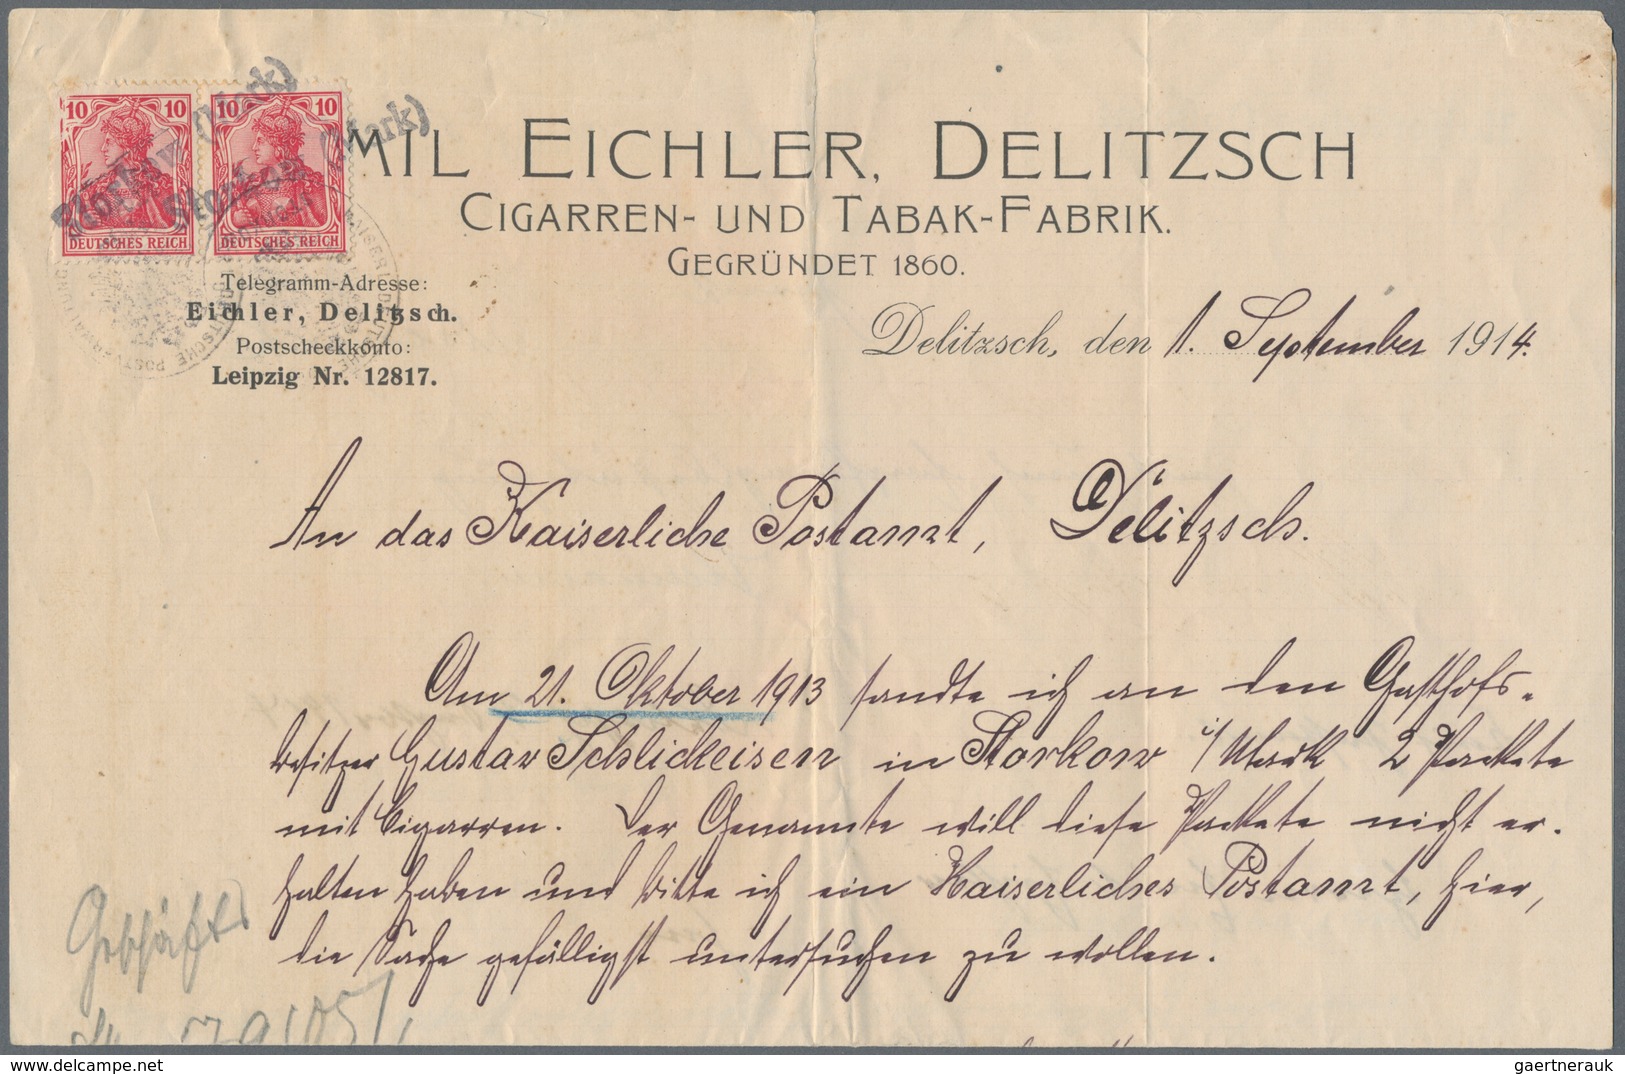 10 10 10 10
DEUTSCHES REICH DEUTSCHES REICH
Storkow (Mark)
Storkow (Mark)
MIL EICHLER, DELITZSCH
CIGARREN- UND TABAK-FABRIK.
GEGRÜNDET 1860.
Telegramm-Adresse:
Eichler, Delitzsch.
Postscheckkonto:
Leipzig Nr. 12817.
Delitzsch, den 1. September 1914.
An das Kaiserliche Postamt, Delitzsch.
Am 21. Oktober 1913 sandte ich an den Gasthofs-
besitzer Gustav Schlickeisen in Storkow i/Mark 2 Packete
mit Cigarren. Der Genannte will diese Packete nicht er-
halten haben und bitte ich ein Kaiserliches Postamt, hier,
die Sache gefälligst untersuchen zu wollen.
Geschäfts
gaertnerauk